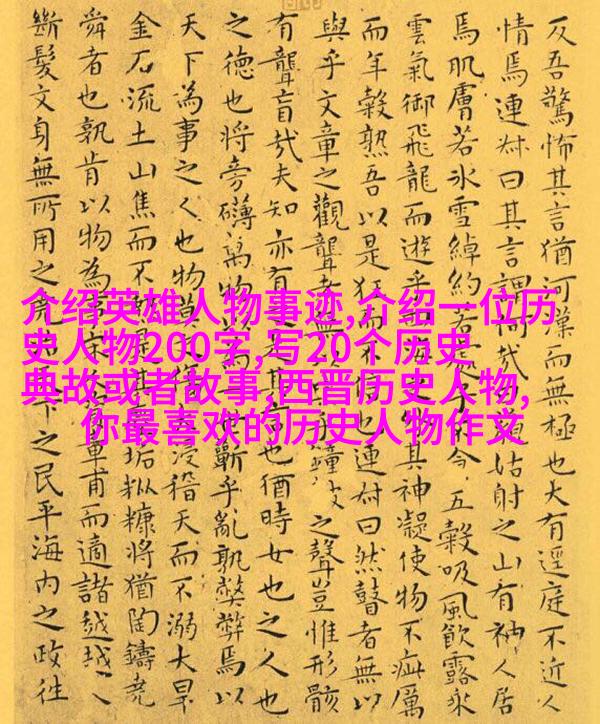 介绍英雄人物事迹,介绍一位历
史人物200字,写20个历史
典故或者故事,西晋历史人物,
你最喜欢的历史人物作文
反吾驚怖其言猶河漢而無極也大有逕庭不近人
情焉連叔曰其言謂何哉姑射之山有神人居
焉肌膚若冰雪綽約若五穀吸風飲露乘
雲氣御飛龍而遊乎其神凝使物不疵厲
而年穀熟吾以是狂而不也連叔曰然瞽者無以
與乎文章之觀聾者無之聲豈惟形骸
有聾盲哉夫知亦有也猶時女也之人也
之德也將旁礴萬物蘄乎亂孰弊弊焉以
天下為事之人也物莫之浸稽天而不溺大旱
金石流土山焦而不垢粃糠將猶陶鑄堯
舜者也孰肯以物為事章甫而適諸越越人
斷髮文身無所用之堯下之民平海内之政往